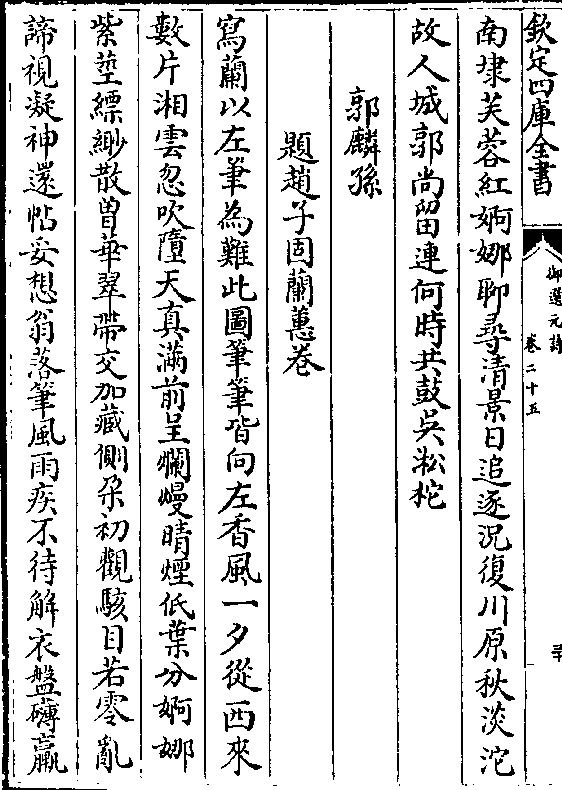 欽定四庫全書
御選元詩
卷二十五
南埭芙蓉紅婀娜聊尋清景日追逐況復川原秋淡沱
故人城郭尚留連何時共鼓吳淞柁
郭麟孫
題趙子固蘭蕙卷
寫蘭以左筆為難此圖筆筆皆向左香風一夕從西來
數片湘雲忽吹墮天真滿前呈爛熳晴煙低葉分婀娜
紫莖縹緲散曽華翠帶交加藏側朶初觀駭目若零亂
諦視凝神還帖妥想翁落筆風雨疾不待解衣盤礡臝